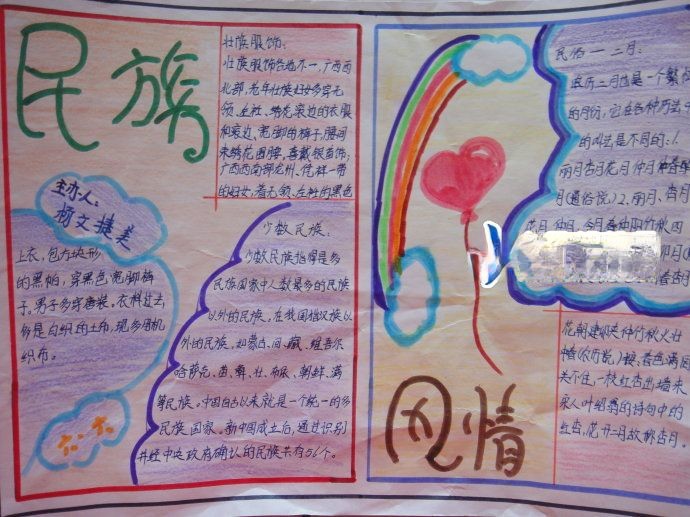 民族
壮族服饰:
壮族服饰各地不一,广西西
北部,老年壮族妇女多穿无
领、左衽、绣花滚边的衣服
和滚边、宽脚的裤子,腰间
束绣花围腰,喜戴银首饰;
广西西南部龙州、凭祥一带
的妇女,着无领、左衽的黑色
主办人:
杨文捷美
上衣,包方块形
的黑帕,穿黑色宽脚裤
子。男子多穿唐装。衣料过去
多是自织的土布,现多用机
织布。
少数民族:
少数民族指的是多
民族国家中人数最多的民族
以外的民族。在我国指汉族以
外的民族,如蒙古、回、藏、维吾尔
哈萨克、苗、彝、壮、布依、朝鲜、满
等民族。中国自古以来就是一个统一的多
民族国家。新中国成立后,通过识别
并经中央政府确认的民族共有56个。
民俗一二月:
农历二月也是一个繁忙
的月份,它在各种历法
的叫法是不同的:1.
丽月杏月花月仲月仲春
月(通俗说)2.丽月、杏月
花月 仲阳
花朝建卯夹钟竹秋火壮
(农历说)
关不住,一枝红杏出墙来
宋人叶绍翁的诗句中的
红杏,花开二月故称杏月。
风情